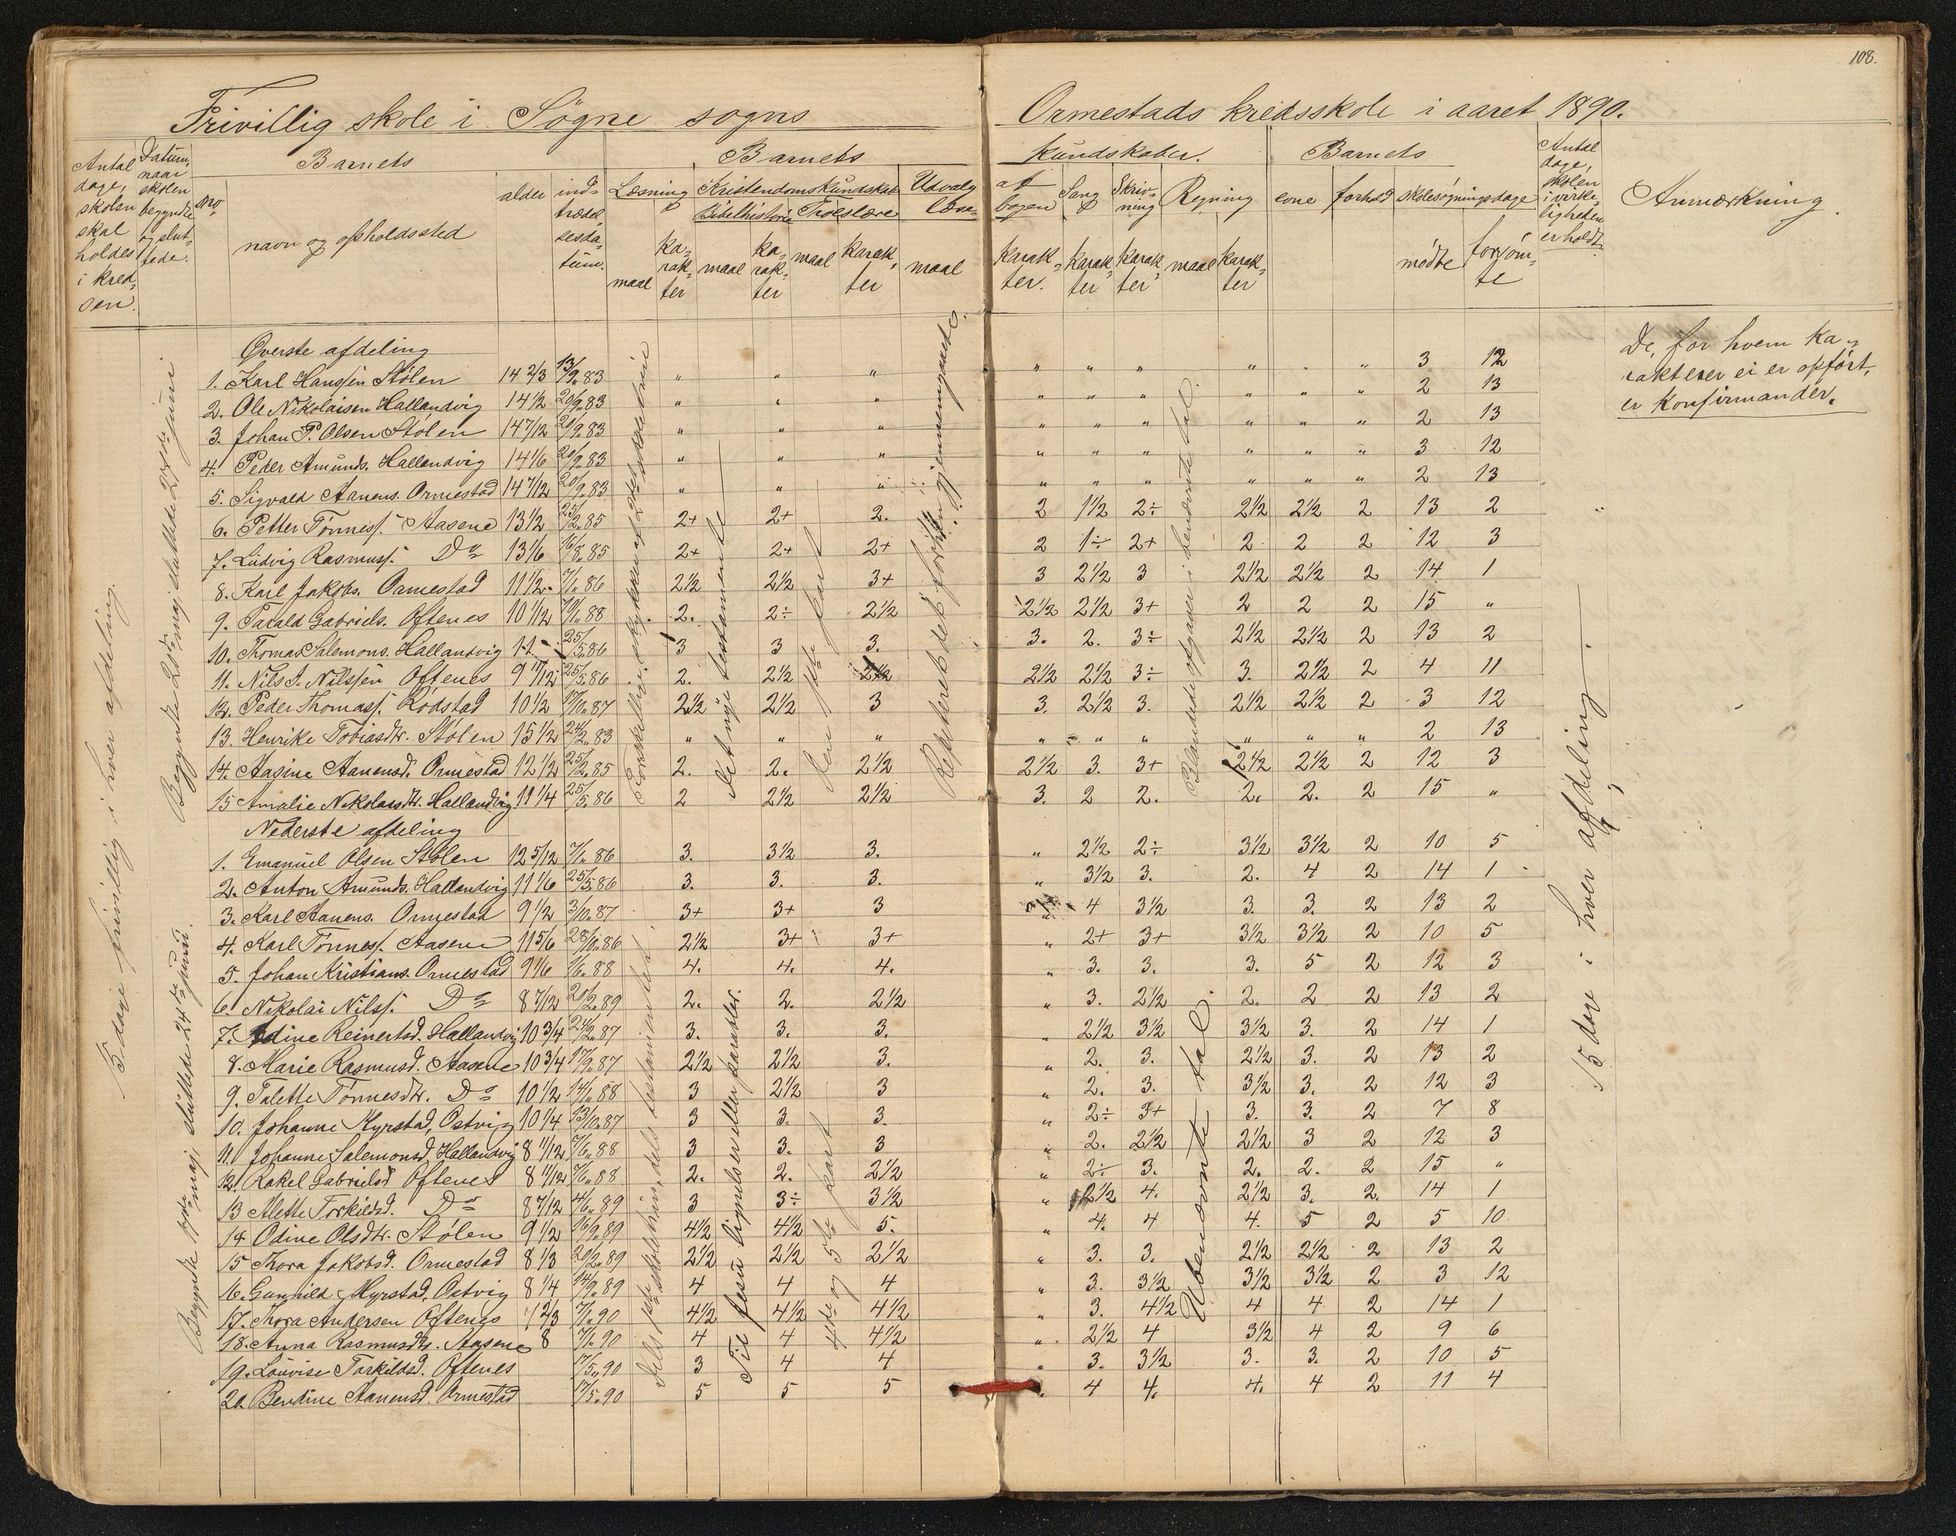 108.
Frivillig skole i Søgne sogns Ormestads kredsskole i aaret 1890.
Antal dage, skolen skal holdes i kredsen.
Datum, naar skolen begyndte og sluttede.
No.
Barnets
navn og opholdssted
alder
indtrædelsesdatum.
Barnets kundskaber.
Læsning
Kristendomskundskab
Bibelhistorie
Troeslære
Udvalg af læsebogen
Sang
Skrivning
Regning
Barnets
evne
forhold
skolesøgningsdage
Antal dage, skolen i virkeligheden er holdt
Anmærkning.
maal karakter maal karakter maal karakter maal karakter. karakter karakter maal karakter mødte forsømte
Øverste afdeling
1. Karl Hanssen Stølen 14 2/3 13/9.83 " " " " " " " " " 3 12
2. Ole Nikolaisen Hallandvig 14 1/2 20/9.83 " " " " " " " " " 2 13
3. Johan P. Olsen Stølen 14 7/12 20/9.83 " " " " " " " " " 2 13
4. Peder Amunds. Hallandvig 14 1/6 20/9.83 " " " " " " " " " 3 12
5. Sigvald Aanens. Ormestad 14 7/12 20/9.83 " " " " " " " " " 2 13
6. Petter Tønness. Aasene 13 1/2 25/2.85 2+ 2+ 2. 2 1 1/2 2÷ 2 1/2 2 1/2 2 13 2
7. Ludvig Rasmuss. Do 13 1/6 16/8.85 2+ 2+ 2+ 2 1÷ 2+ 2 2 2 12 3
8. Karl Jakobs. Ormestad 11 1/2 7/1.86 2 1/2 2 1/2 3+ 3 2 1/2 3 2 1/2 2 1/2 2 14 1
9. Tarald Gabriels. Oftenes 10 1/12 10/1.88 2. 2÷ 2 1/2 2 1/2 2 1/2 3+ 2 2 2 15 "
10. Thomas Salemons. Hallandvig 11 25/5.86 3 3 3. 3. 2. 3÷ 2 1/2 2 1/2 2 13 2
11. Nils J. Nilssen Oftenes 9 11/12 25/5.86 2. 2 1/2 2 1/2 2 1/2 2 1/2 3÷ 3. 2 1/2 2 4 11
12. Peder Thomass. Rødstad 10 1/2 17/10.87 2 1/2 2 1/2 3 3. 2 1/2 3. 2 1/2 2 1/2 2 3 12
13. Henrike Tobiasdtr. Stølen 15 1/2 24/2.83 " " " " " " " " " 2 13
14. Aasine Aanensd. Ormestad 12 1/2 25/2.85 2. 2. 2 1/2 2 1/2 3. 3+ 2 1/2 2 1/2 2 12 3
15 Amalie Nikolaisdtr. Hallandvig 11 1/4 25/5.86 2 2 1/2 2 1/2 3. 2 2. 2. 2. 2 15 "
Nederste afdeling
1. Emanuel Olsen Stølen 12 5/12 7/1.86 3. 3 1/2 3. " 2 1/2 2÷ 3 1/2 3 1/2 2 10 5
2. Anton Amunds. Hallandvig 11 1/6 25/5.86 3. 3. 3. " 3 1/2 3. 2. 4 2 14 1
3. Karl Aanens. Ormestad 9 1/2 3/10.87 3+ 3+ 3 " 4 3 1/2 3. 3. 2 13 2
4. Karl Tønness. Aasene 11 5/6 28/10.86 2 1/2 3+ 3+ " 2+ 3+ 3 1/2 3 1/2 2 10 5
5. Johan Kristians. Ormestad 9 1/6 7/6.88 4. 4. 4. " 3. 3. 3. 5 2 12 3
6. Nikolai Nilss. Do 8 7/12 20/2.89 2. 2. 2 1/2 " 3. 2 1/2 2. 2 2 13 2
7. Edine Reinertsd. Hallandvig 10 3/4 24/2.87 3. 3. 3. " 2 1/2 3 1/2 3 1/2 3. 2 14 1
8. Marie Rasmusd. Aasene 10 3/4 17/9.87 2 1/2 2 1/2 3. " 2. 3. 2 1/2 3. 2 13 2
9. Talette Tønnesdtr. Do 10 1/2 14/1.88 3 2 1/2 3 " 2. 3. 3 1/2 3. 2 12 3
10. Johanne Myrstad, Østvig 10 1/4 13/10.87 3 3. 3. " 2÷ 3+ 3. 3. 2 7 8
11. Johanne Salemonsd. Hallandvig 8 11/12 7/6.88 3 3. 3 " 2. 2 1/2 2 1/2 3 2 12 3
12. Rakel Gabrielsd Oftenes 8 11/12 7/6.88 2. 2. 2 1/2 " 2÷ 3. 2. 2. 2 15 "
13 Alette Torkildsd. Do 8 7/12 4/6.89 3 3÷ 3 1/2 " 2 1/2 4. 2 1/2 3. 2 14 1
14 Odine Olsdtr. Stølen 9 1/2 16/9.89 4 1/2 4 1/2 5. " 4. 4 4. 5 2 5 10
15 Thora Jakobsd. Ormestad 8 1/3 20/2.89 2 1/2 2 1/2 2 1/2 " 3. 3. 2 1/2 2 1/2 2 13 2
16. Gunhild Myrstad, Østvig 8 1/4 14/9.89 4 4 4 " 3. 3 1/2 3 1/2 3 1/2 2 3 12
17. Thora Andersen Oftenes 7 2/3 7/1.90 4 1/2 4 1/2 4 1/2 " 3. 4 1/2 4 4 2 14 1
18. Anna Rasmusdtr. Aasene 8 7/1.90 4 4 4 1/2 " 2 1/2 4 3 1/2 4 2 9 6
19. Lovise Torkildsd. Oftenes 17/5.90 3 4 4 " 3. 3 1/2 3. 3. 2 10 5
20. Bendine Aanensd. Ormestad 17/5.90 5 5 5 " 4 4. 4. 4 2 11 4
15 dage frivillig i hver afdeling.
Begyndte 20de maj, sluttede 23de juni.
Begyndte 19de maj, sluttede 24de juni.
Forskellige stykker af 2det skoletrin
Det nye testamente
den 1ste part
Repeteret det forhen gjennemgaaede.
Blandede opgaver i benævnte tal.
Dels 1ste skoletrin, dels testamentet.
Til Jesu lignelser eller parabler.
4de og 5te part
Ubenævnte tal.
15 dage i hver afdeling.
De, for hvem karakterer ei er opført,
er konfirmander.